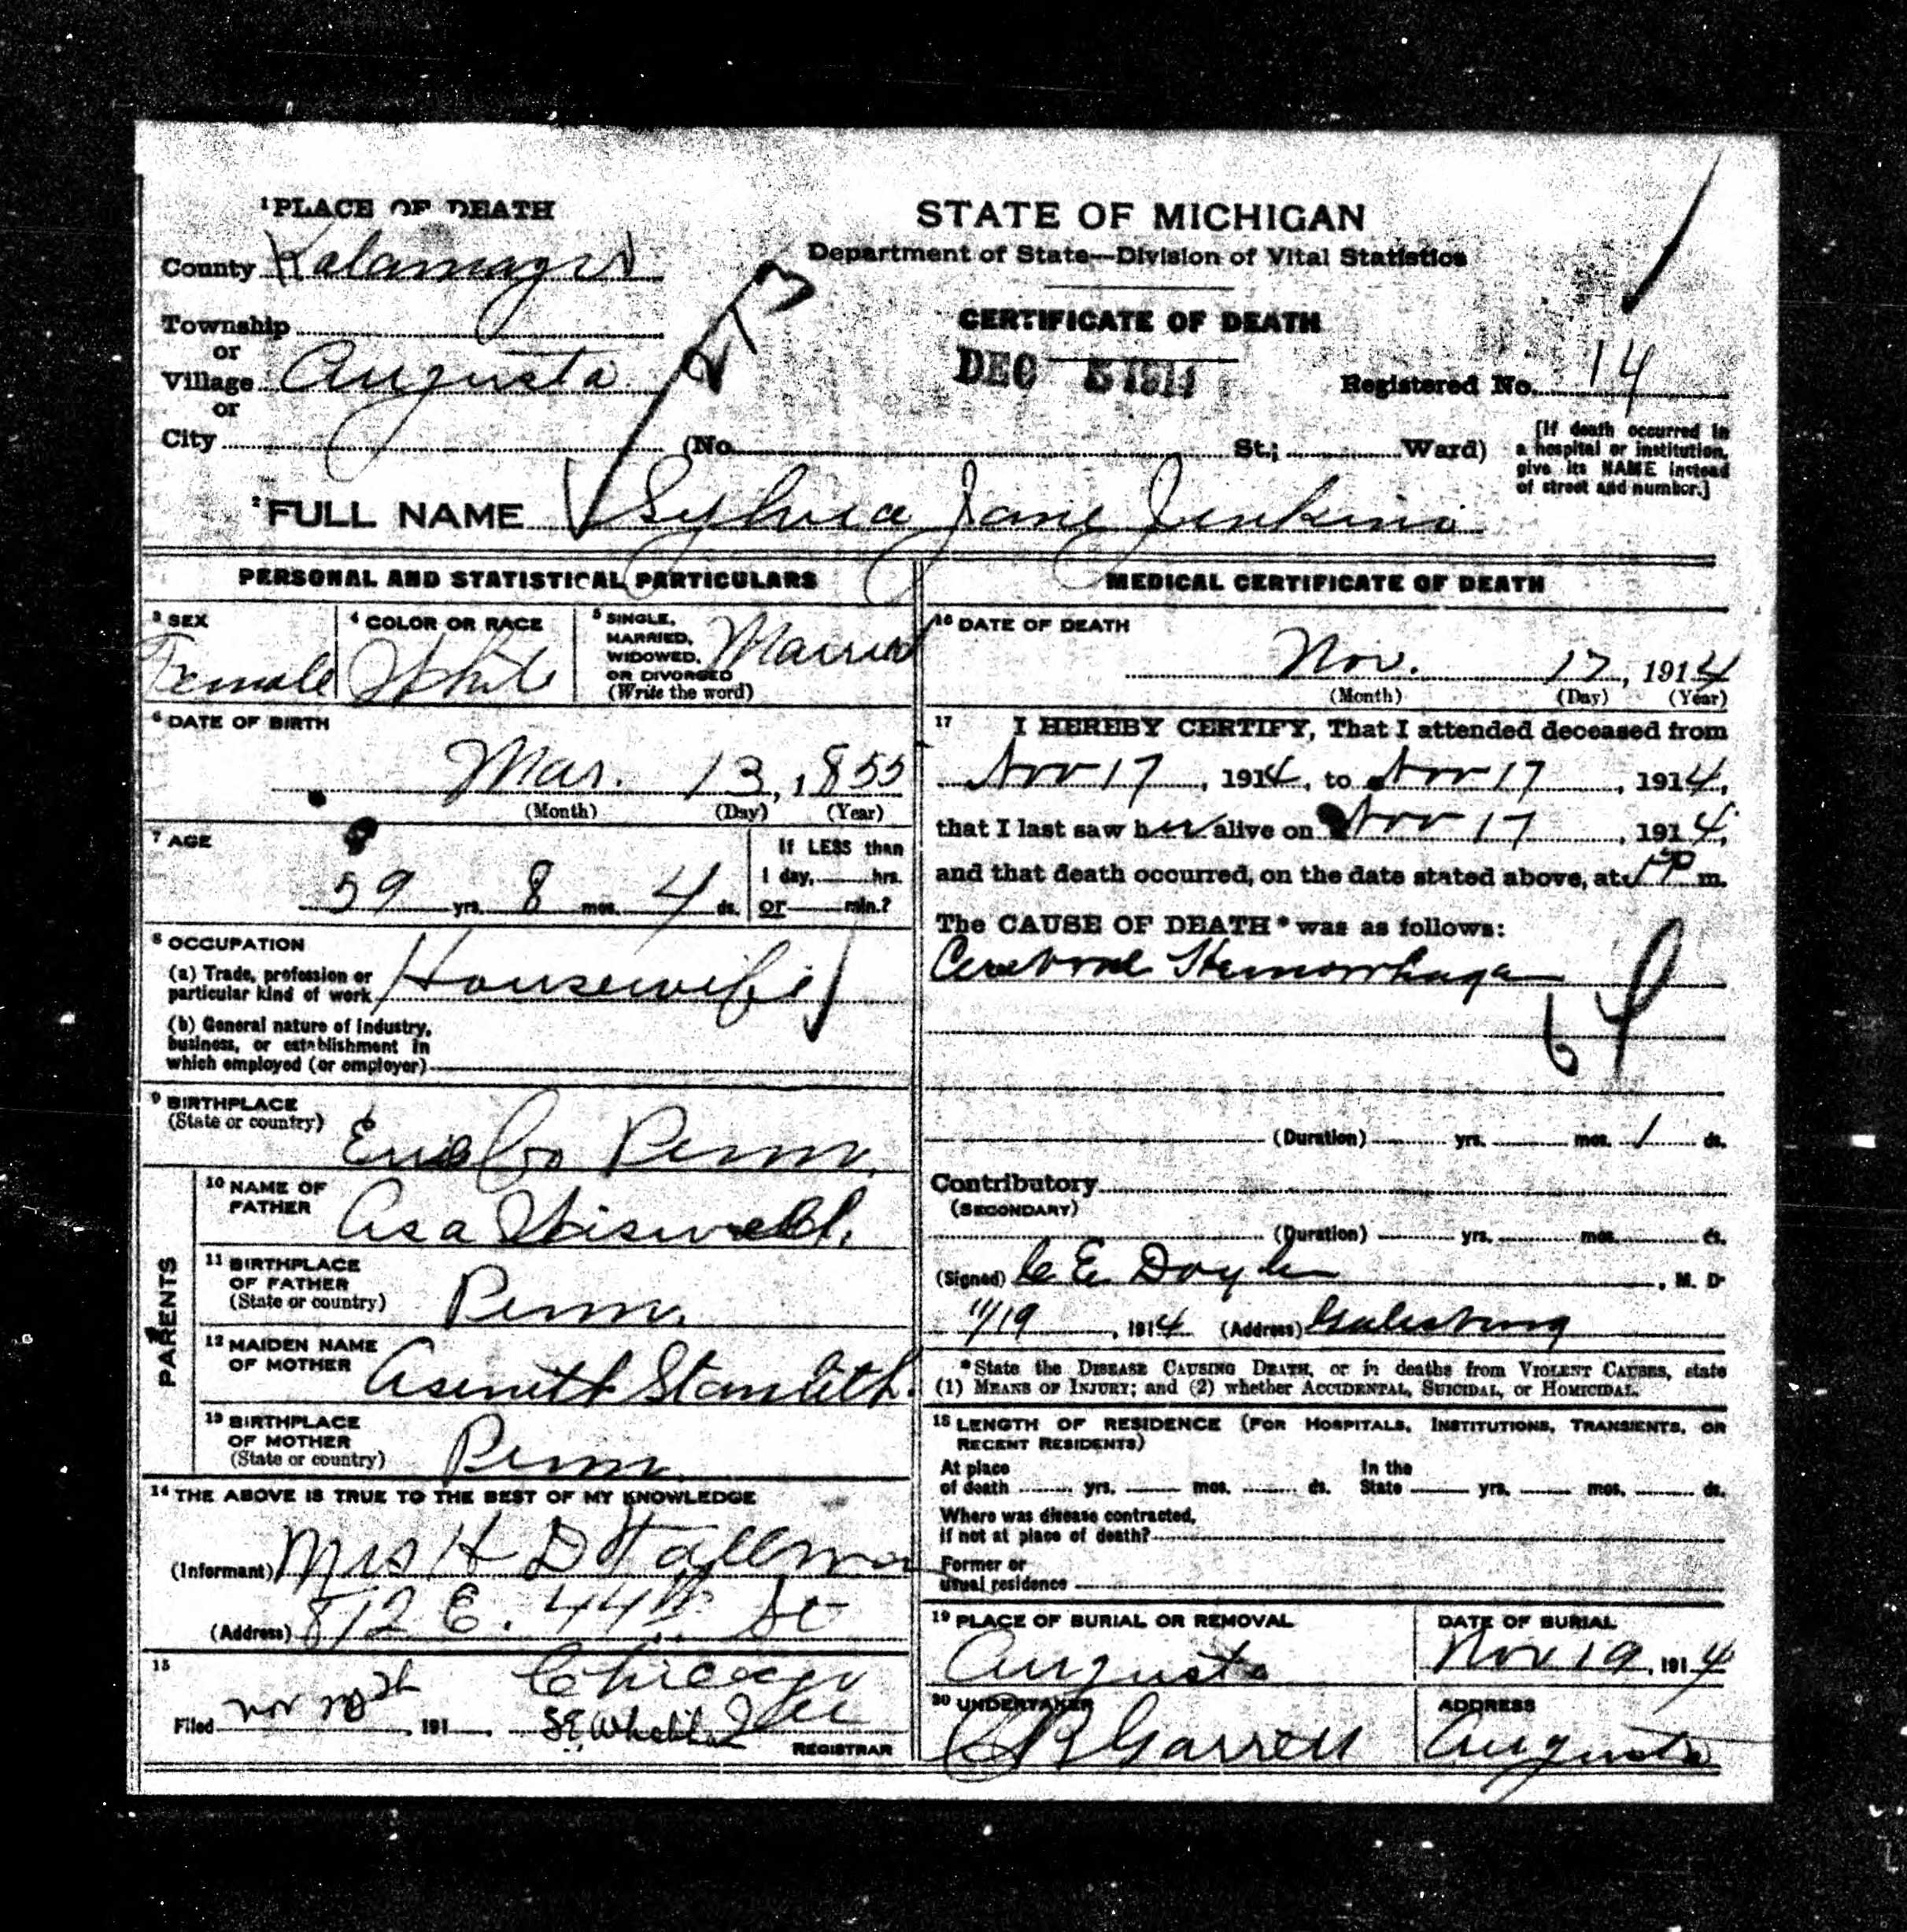 1 PLACE OF DEATH
County Kalamazoo
Township
or
Village Augusta
or
City (No. St.; Ward)
273
STATE OF MICHIGAN
Department of State—Division of Vital Statistics
CERTIFICATE OF DEATH
DEC 5 1914
Registered No. 14
[If death occurred in
a hospital or institution,
give its NAME instead
of street and number.]
2 FULL NAME Sylvia Jane Jenkins
PERSONAL AND STATISTICAL PARTICULARS
3 SEX
Female
4 COLOR OR RACE
White
5 SINGLE,
MARRIED,
WIDOWED,
OR DIVORCED
(Write the word)
Married
6 DATE OF BIRTH
Mar. 13, 1855
(Month) (Day) (Year)
7 AGE
59 yrs. 8 mos. 4 ds.
If LESS than
1 day, hrs.
or min.?
8 OCCUPATION
(a) Trade, profession or
particular kind of work Housewife
(b) General nature of industry,
business, or establishment in
which employed (or employer)
9 BIRTHPLACE
(State or country)
Erie Co Penn.
PARENTS
10 NAME OF
FATHER
Asa Wiswell.
11 BIRTHPLACE
OF FATHER
(State or country)
Penn.
12 MAIDEN NAME
OF MOTHER
Asenith
13 BIRTHPLACE
OF MOTHER
(State or country)
Penn.
14 THE ABOVE IS TRUE TO THE BEST OF MY KNOWLEDGE
(Informant) Mrs H D
(Address) 812 E. 44th St
Chicago
Ill
15
Filed Nov 20th, 191
REGISTRAR
MEDICAL CERTIFICATE OF DEATH
16 DATE OF DEATH
Nov. 17, 1914
(Month) (Day) (Year)
17 I HEREBY CERTIFY, That I attended deceased from
Nov 17, 1914, to Nov 17, 1914,
that I last saw her alive on Nov 17, 1914,
and that death occurred, on the date stated above, at m.
The CAUSE OF DEATH* was as follows:
Cerebral Hemorrhage
64
(Duration) yrs. mos. 1 ds.
Contributory
(SECONDARY)
(Duration) yrs. mos. ds.
(Signed) C E Doyle, M. D.
11/19, 1914 (Address) Galesburg
*State the DISEASE CAUSING DEATH, or in deaths from VIOLENT CAUSES, state
(1) MEANS OF INJURY; and (2) whether ACCIDENTAL, SUICIDAL, or HOMICIDAL.
18 LENGTH OF RESIDENCE (FOR HOSPITALS, INSTITUTIONS, TRANSIENTS, OR
RECENT RESIDENTS)
At place
of death yrs. mos. ds.
In the
State yrs. mos. ds.
Where was disease contracted,
if not at place of death?
Former or
usual residence
19 PLACE OF BURIAL OR REMOVAL
Augusta
DATE OF BURIAL
Nov 19, 1914
20 UNDERTAKER
Garrett
ADDRESS
Augusta